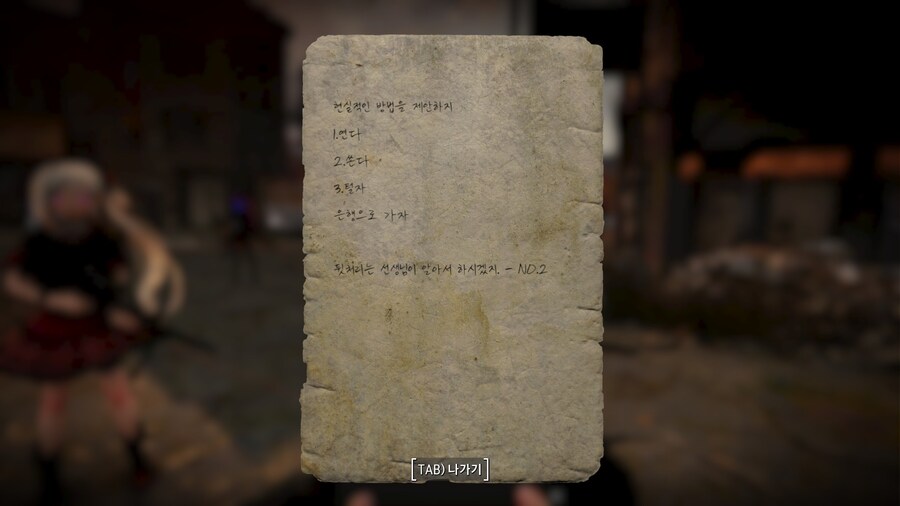 현실적인 방법을 제안하지
1.연다
2.쏜다
3.털자
은행으로 가자
뒷처리는 선생님이 알아서 하시겠지. - NO.2
[TAB) 나가기]